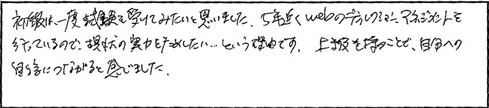 初級は、一度試験を受けてみたいと思いました。5年近くwebのディレクション、マネジメントを
行っているので、現状の実力をためしたい…という理由です。上級を持つことで、自分への
自信につながると感じました。